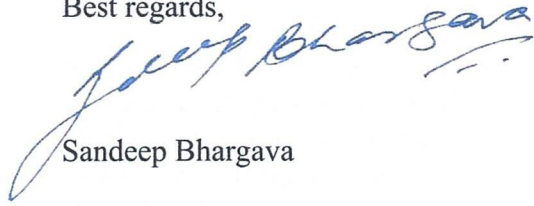 Best regards,
Sdeep Bhargava
Sandeep Bhargava